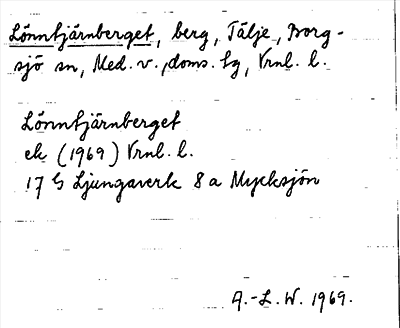 Lönntjärnberget, berg, Tälje, Borg-
sjö sn, Med. v., doms. tg, Vrnl. l.
Lönntjärnberget
ek (1969) Vrnl. l.
17 G Ljungaverk 8 a Mycksjön
A.-L. W. 1969.